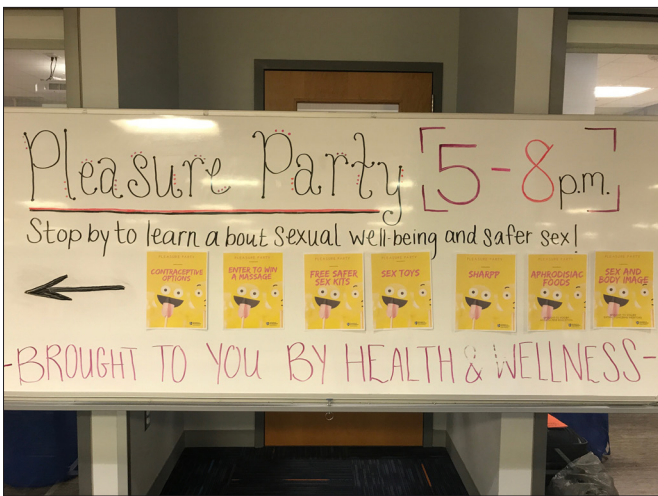 Pleasure Party [5-8 p.m.]
Stop by to learn about sexual well-being and safer sex!
CONTRACEPTIVE
OPTIONS
ENTER TO WIN
A MASSAGE
FREE SAFER
SEX KITS
SEX TOYS
SHARPP
APHRODISIAC
FOODS
SEX AND
BODY IMAGE
-BROUGHT TO YOU BY HEALTH & WELLNESS-